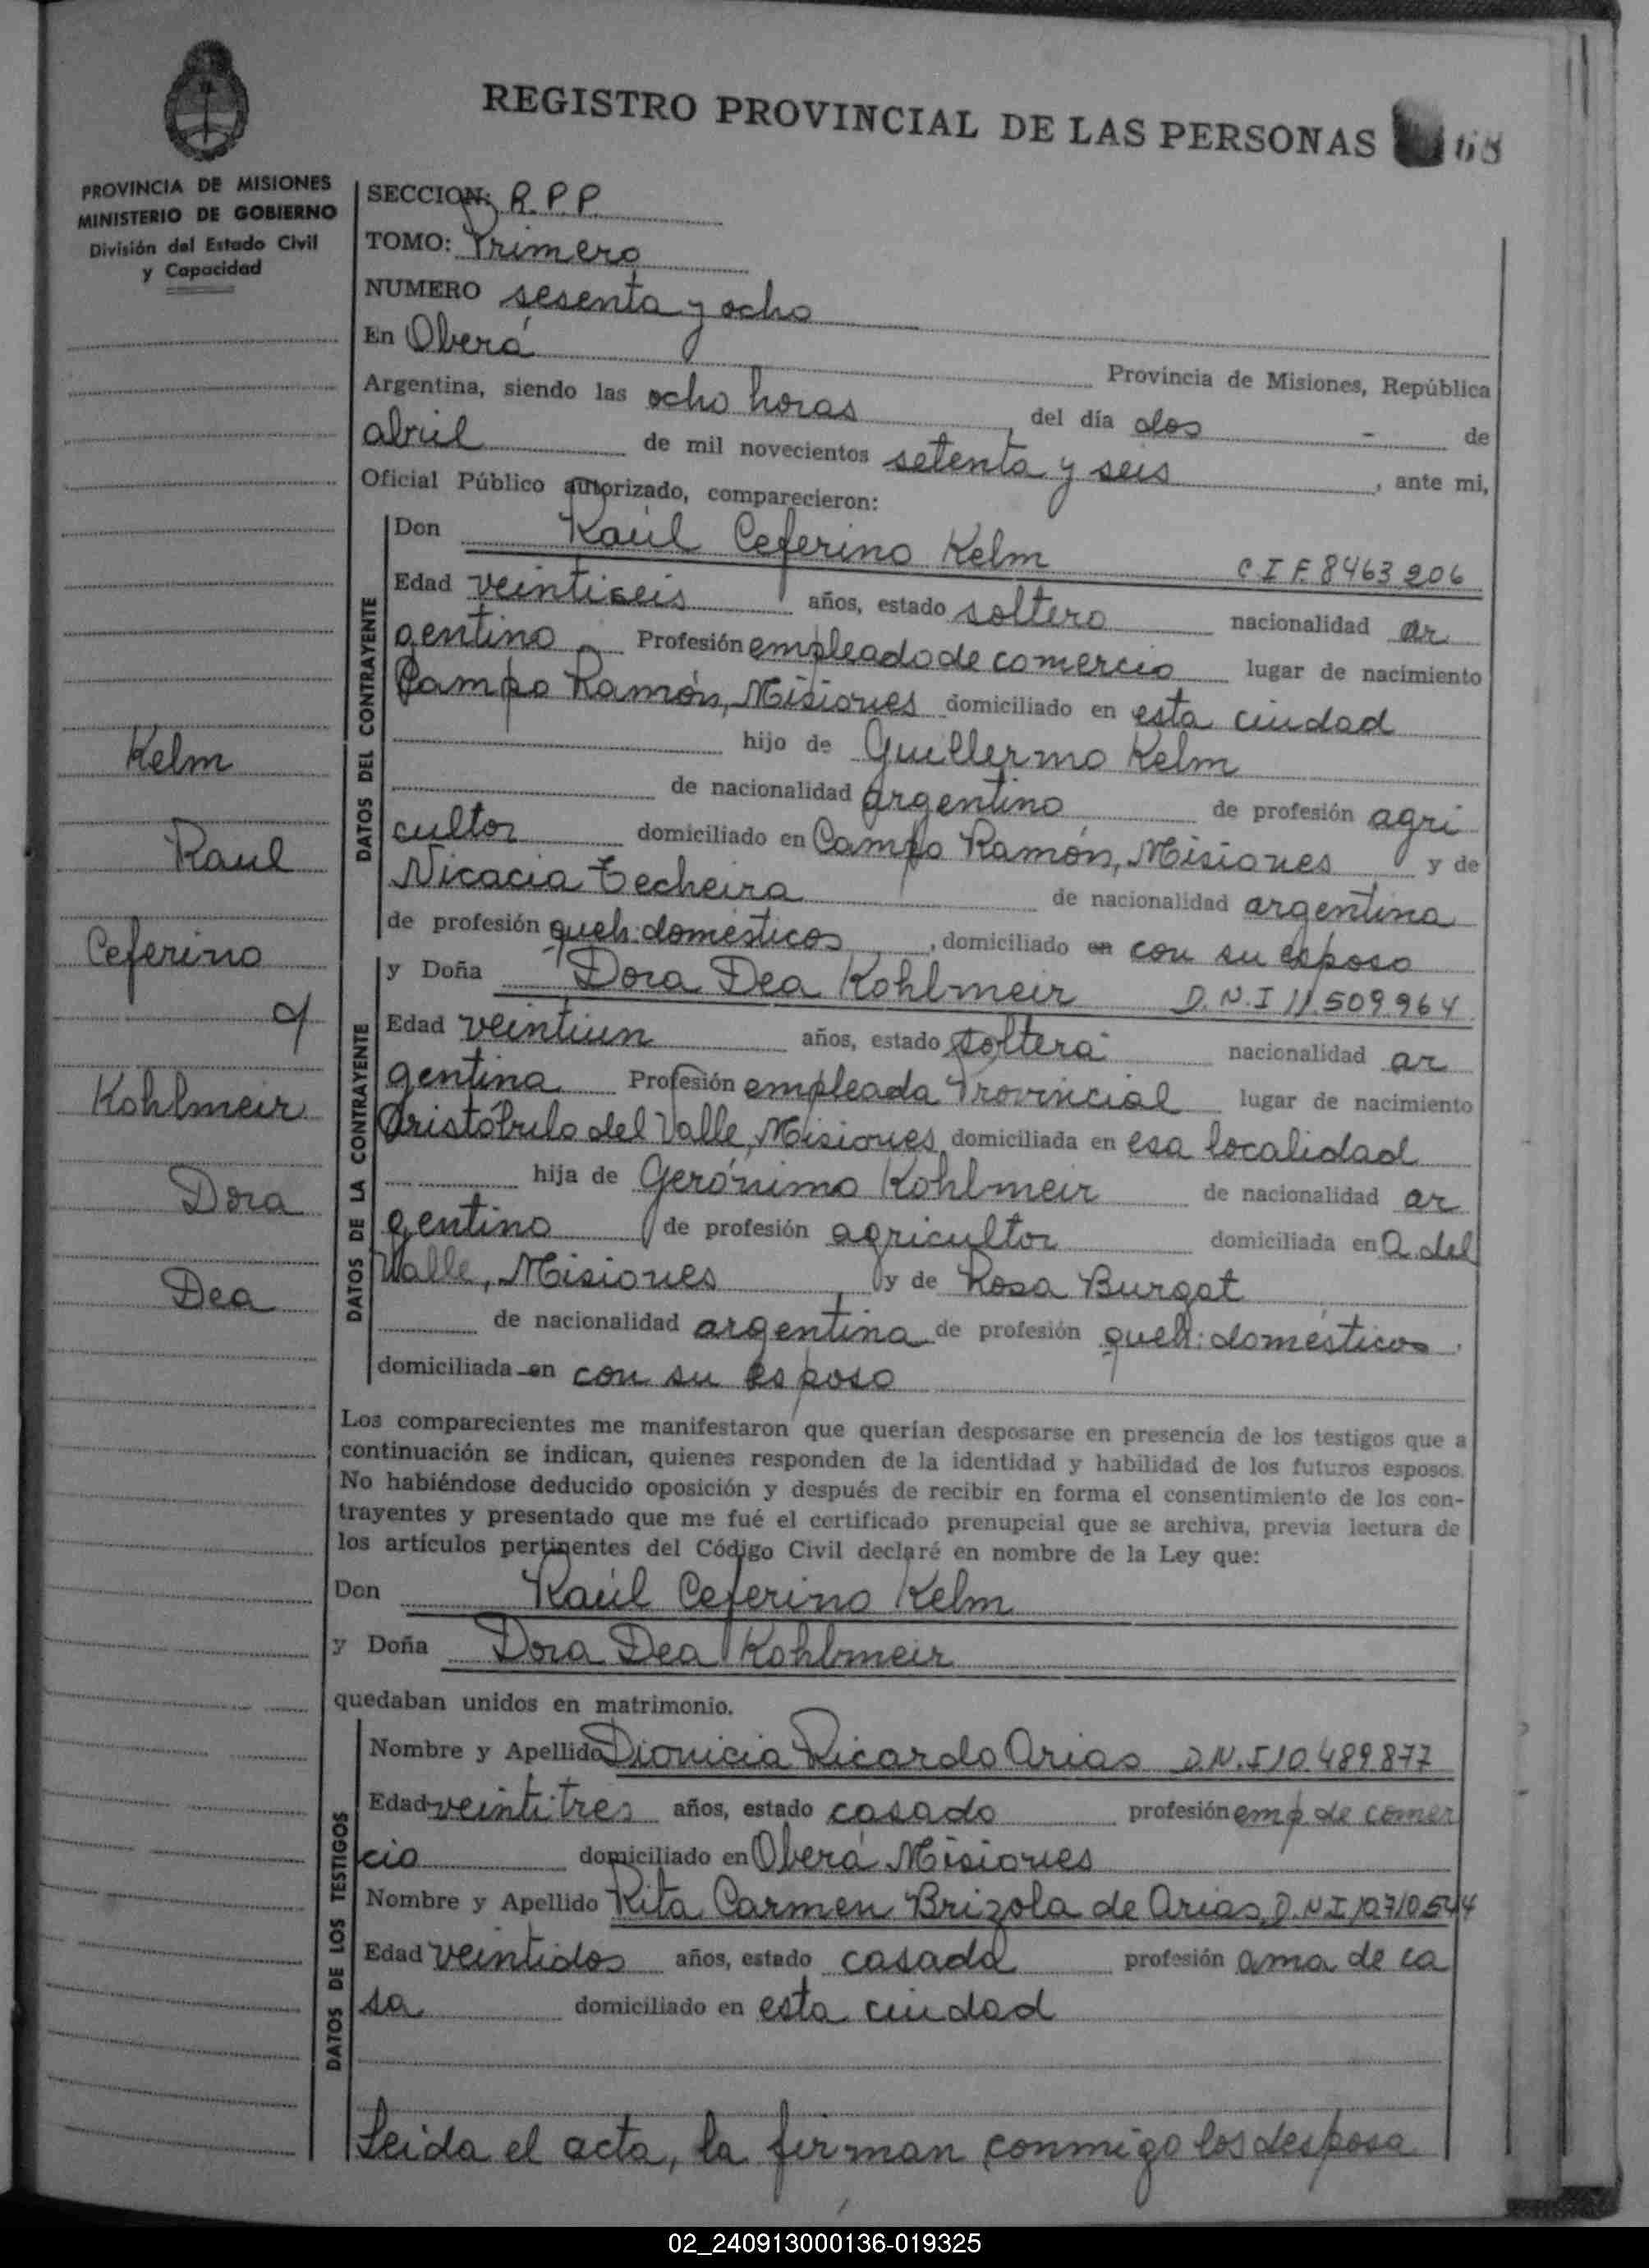 REGISTRO PROVINCIAL DE LAS PERSONAS 68
PROVINCIA DE MISIONES
MINISTERIO DE GOBIERNO
División del Estado Civil
y Capacidad
SECCION: R.P.P.
TOMO: Primero
NUMERO sesenta y ocho
En Oberá Provincia de Misiones, República
Argentina, siendo las ocho horas, del día dos - de
abril de mil novecientos setenta y seis, ante mi,
Oficial Público autorizado, comparecieron:
DATOS DEL CONTRAYENTE
Don Raúl Ceferino Kelm C I F. 8463206
Edad veintiseis años, estado soltero nacionalidad ar
gentino Profesión empleado de comercio lugar de nacimiento
Campo Ramón, Misiones domiciliado en esta ciudad
hijo de Guillermo Kelm
de nacionalidad argentino de profesión agri
cultor domiciliado en Campo Ramón, Misiones y de
Nicacia Techeira de nacionalidad argentina
de profesión queh. domésticos, domiciliado en con su esposo
Kelm
Raul
Ceferino
y
Kohlmeir
Dora
Dea
DATOS DE LA CONTRAYENTE
y Doña Dora Dea Kohlmeir D.N.I 11.509.964
Edad veintiun años, estado soltera nacionalidad ar
gentina Profesión empleada Provincial lugar de nacimiento
Aristóbulo del Valle, Misiones domiciliada en esa localidad
hija de Gerónimo Kohlmeir de nacionalidad ar
gentino de profesión agricultor domiciliada en A. del
Valle, Misiones y de Rosa Burgat
de nacionalidad argentina de profesión queh: domésticos
domiciliada en con su esposo
Los comparecientes me manifestaron que querían desposarse en presencia de los testigos que a
continuación se indican, quienes responden de la identidad y habilidad de los futuros esposos.
No habiéndose deducido oposición y después de recibir en forma el consentimiento de los con-
trayentes y presentado que me fué el certificado prenupcial que se archiva, previa lectura de
los artículos pertinentes del Código Civil declaré en nombre de la Ley que:
Don Raúl Ceferino Kelm
y Doña Dora Dea Kohlmeir
quedaban unidos en matrimonio.
DATOS DE LOS TESTIGOS
Nombre y Apellido Dionicia Ricardo Arias D.N.I 10.489.877
Edad veintitres años, estado casado profesión emp de comer
cio domiciliado en Oberá Misiones
Nombre y Apellido Rita Carmen Brizola de Arias, D.N.I 12.710.544
Edad veintidos años, estado casada profesión ama de ca
sa domiciliado en esta ciudad
Leida el acta, la firman conmigo los desposa
02_240913000136-019325